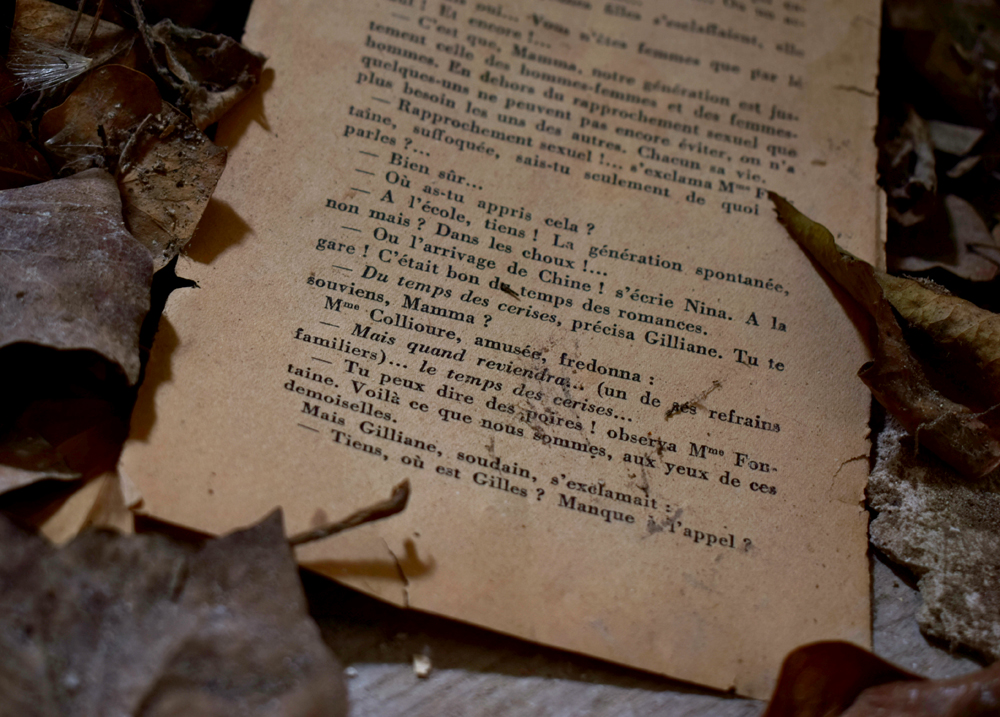 filles s'esclaffaient, elle
oui... Vous n'êtes femmes que par là
! Et encore !...
— C'est que, Mamma, notre génération est jus-
tement celle des hommes-femmes et des femmes-
hommes. En dehors du rapprochement sexuel que
quelques-uns ne peuvent pas encore éviter, on n'a
plus besoin les uns des autres. Chacun sa vie.
— Rapprochement sexuel !... s'exclama Mme F
taine, suffoquée, sais-tu seulement de quoi
parles ?...
— Bien sûr...
— Où as-tu appris cela ?
— A l'école, tiens ! La génération spontanée,
non mais ? Dans les choux !...
— Ou l'arrivage de Chine ! s'écrie Nina. A la
gare ! C'était bon du temps des romances.
— Du temps des cerises, précisa Gilliane. Tu te
souviens, Mamma ?
Mme Collioure, amusée, fredonna :
— Mais quand reviendra... (un de ses refrains
familiers)... le temps des cerises...
— Tu peux dire des poires ! observa Mme Fon-
taine. Voilà ce que nous sommes, aux yeux de ces
demoiselles.
Mais Gilliane, soudain, s'exclamait :
— Tiens, où est Gilles ? Manque à l'appel ?